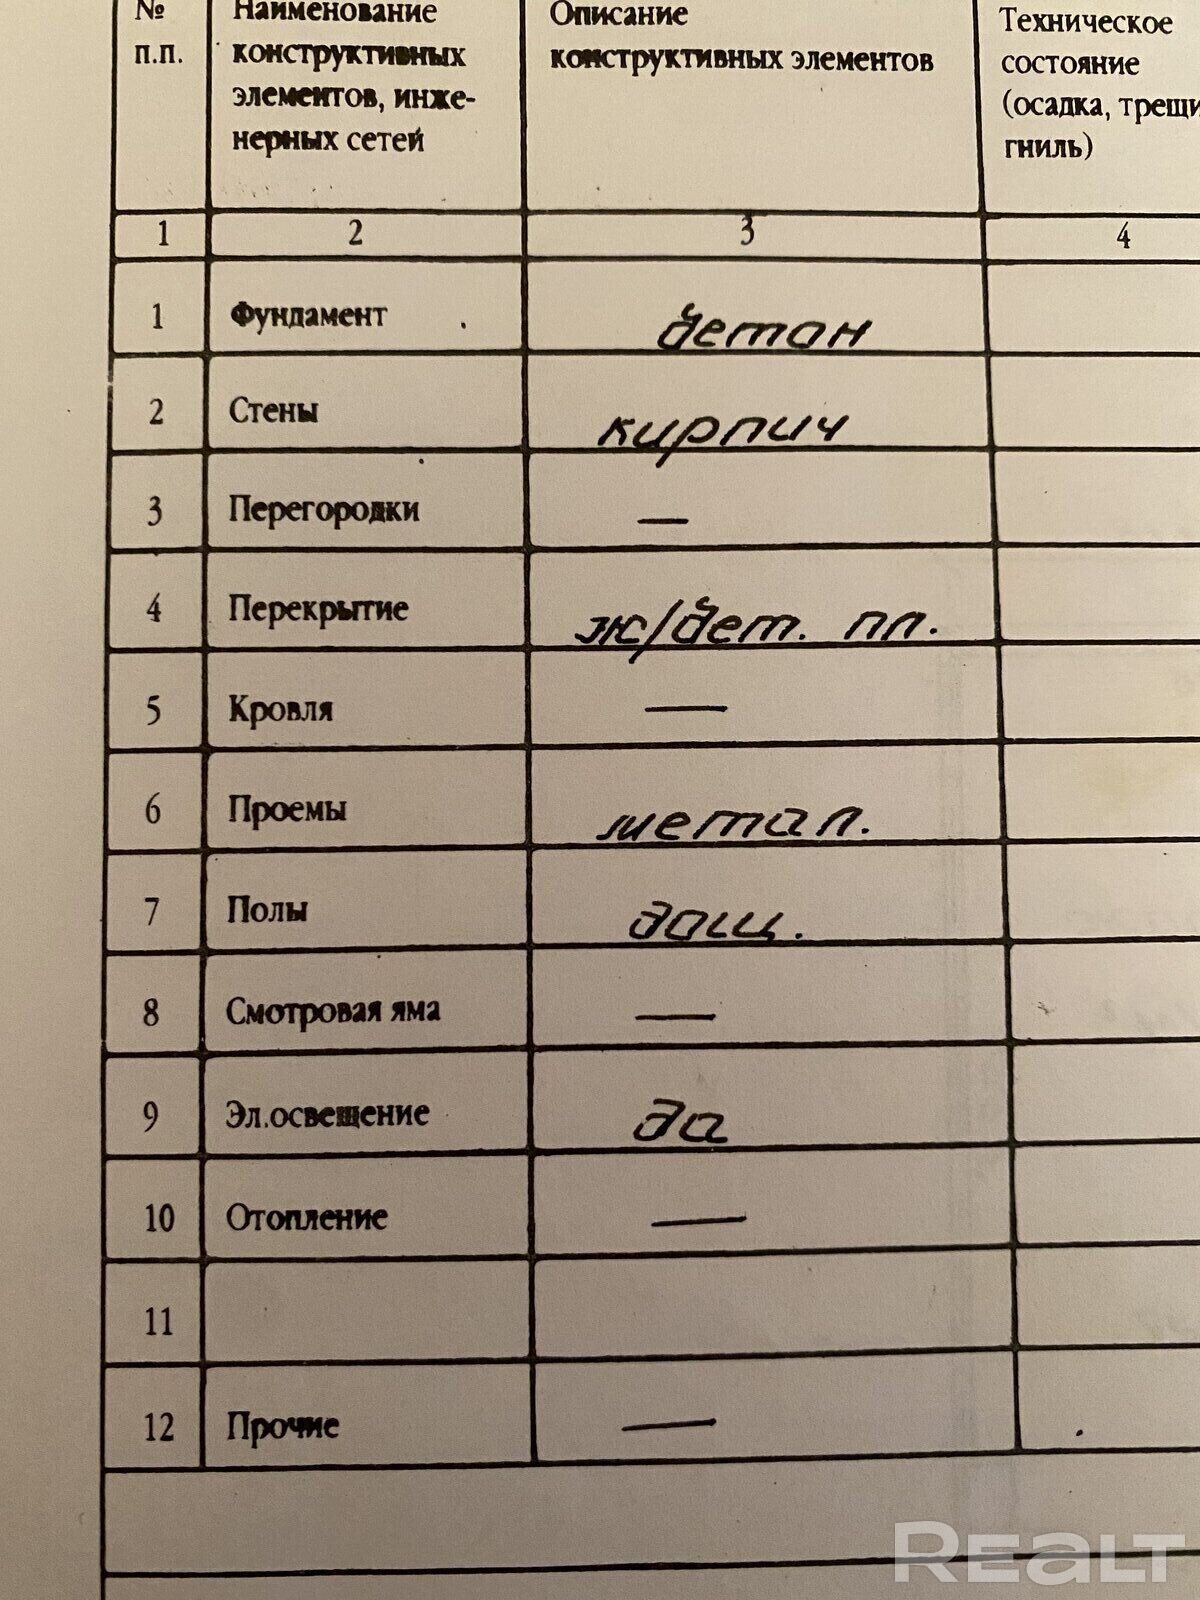 № п.п. Наименование конструктивных элементов, инже-нерных сетей Описание конструктивных элементов Техническое состояние (осадка, трещи гниль)
1 2 3 4
1 Фундамент бетон
2 Стены кирпич
3 Перегородки —
4 Перекрытие ж/бет. пл.
5 Кровля —
6 Проемы метал.
7 Полы дощ.
8 Смотровая яма —
9 Эл.освещение да
10 Отопление —
11
12 Прочие —
REALT